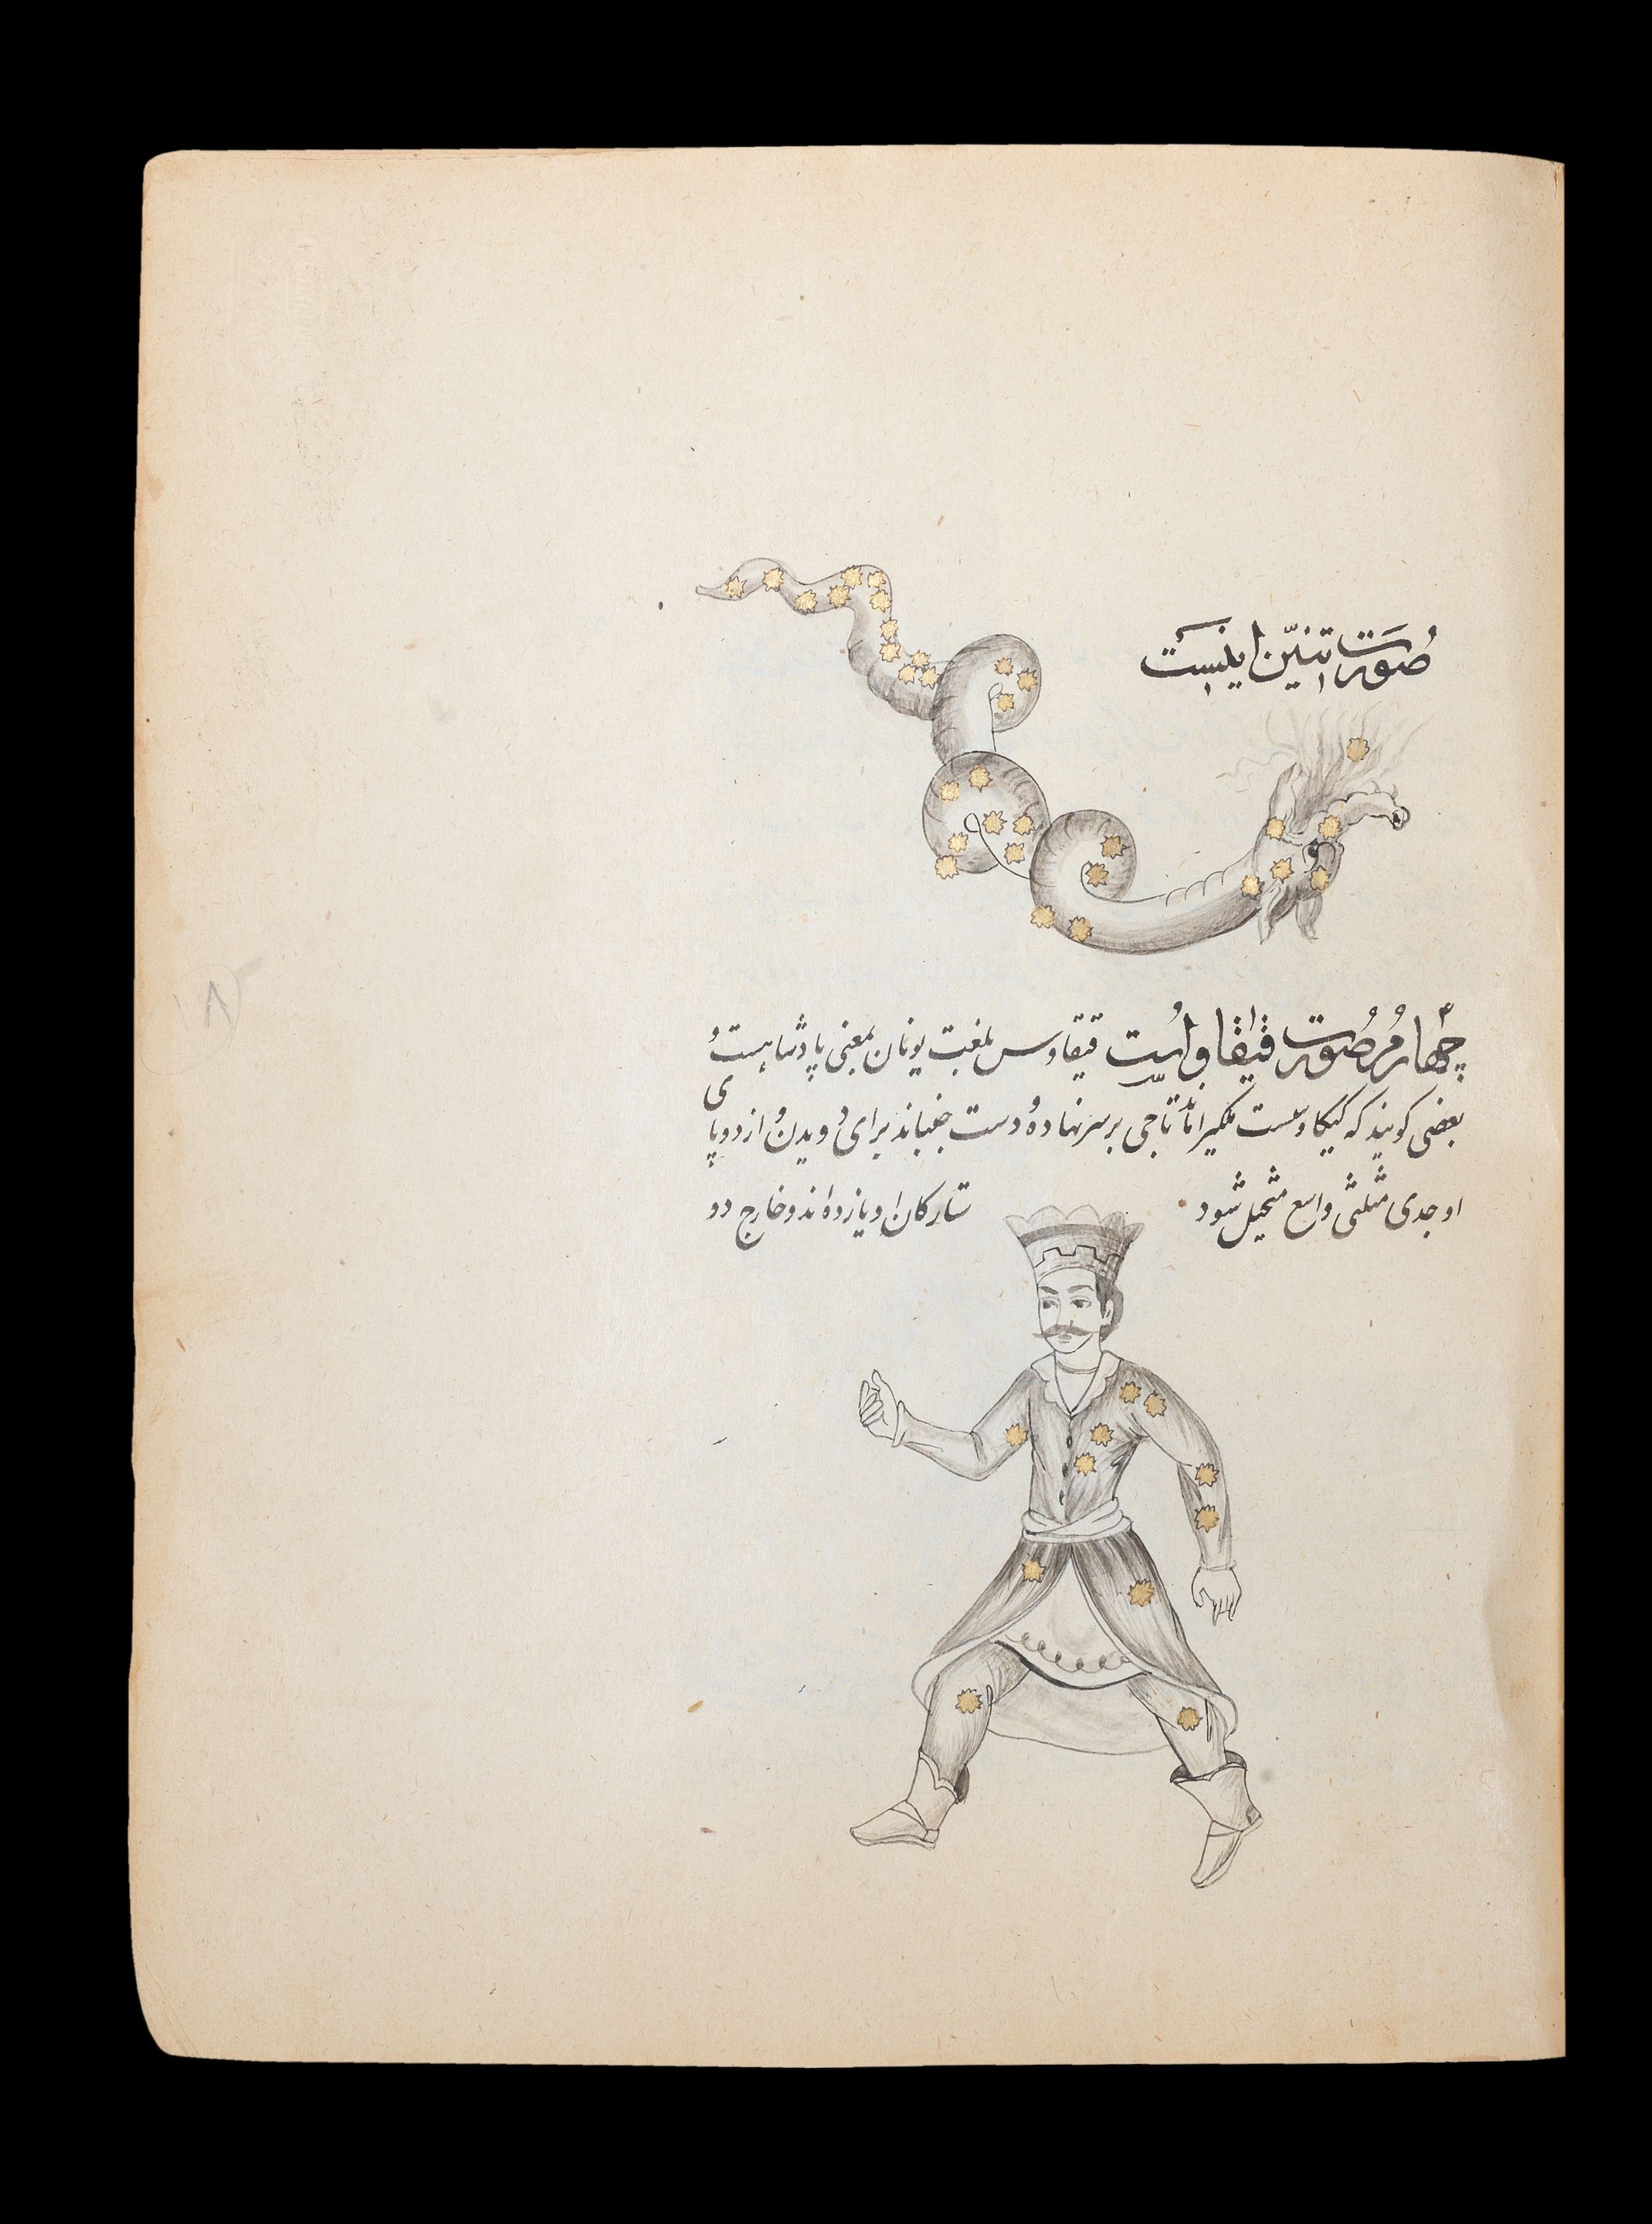 صُورَت تنیّن اینست
۴
چهارم صُورت قیقاوس است قیقاوس بلغت یونان بمعنی پادشاهست وُ
بعضی کویند که کیکاوسست ملکیرا ماند تاجی بر سر نهاده وُ دست جنباند برای دویدن وُ از دو پای
او جدی مثلثی واسع متخیل شود ستارکان او یازده اند و خارج دو
۸